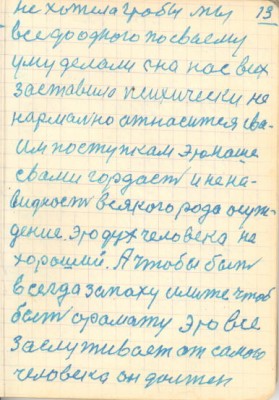 не хотела чтобы мы 13
все до одного по своему
уму делали она нас всех
заставило психически не
нармално относится сва-
им поступкам эю наше
свами гордаст и нена-
видност всякого рода осуж-
дение. эю дух человека не
хороший. А чтобы быт
всегда запаху или же чтоб
быт арамату эю все
заслуживает от самого
человека он должен